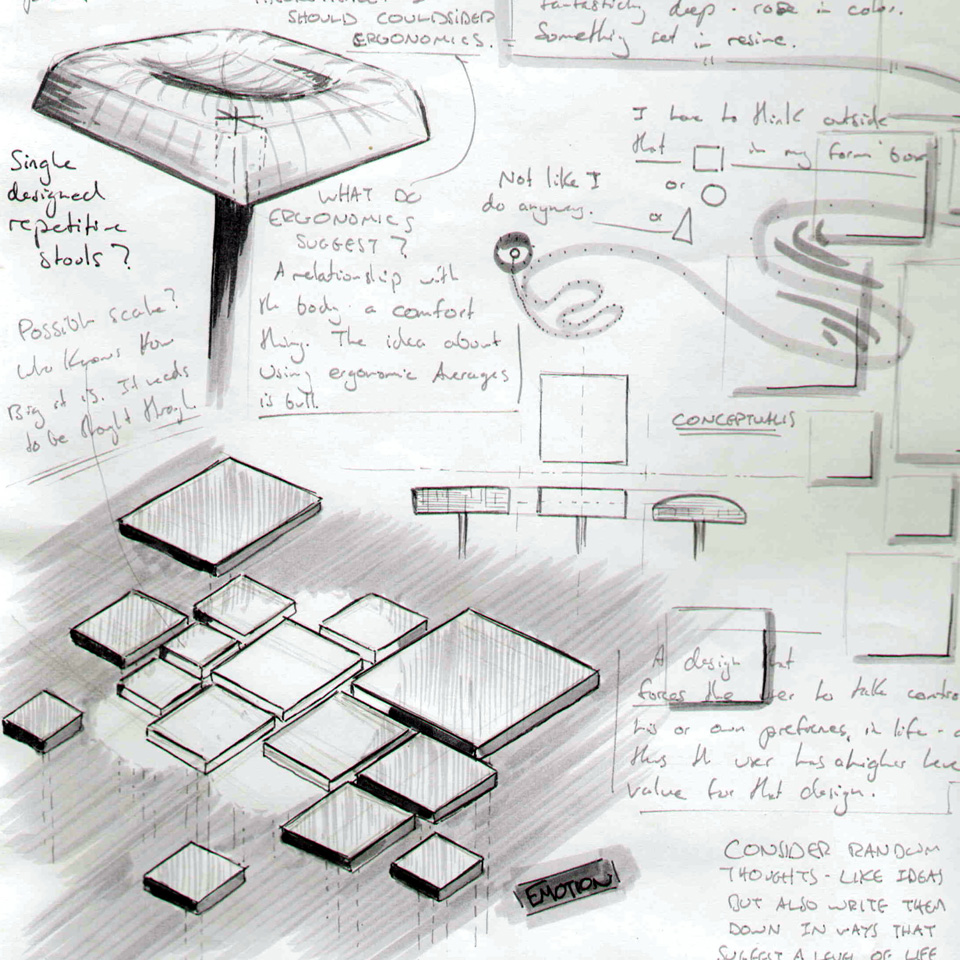 SHOULD COULDSIDER
ERGONOMICS.
fantasticly deep - rose in color.
Something set in resine.
I have to think outside
that
in my form box
or
or
Not like I
do anyway.
Single
designed
repetitive
stools?
WHAT DO
ERGONOMICS
SUGGEST?
A relationship with
the body; a comfort
thing. The idea about
using ergonomic Averages
is bull.
Possible scale?
Who knows how
Big it is. It needs
to be thought through.
CONCEPTUALIS
A design that
forces the user to take contro
his or own preferences in life -
thus the user has a higher leve
value for that design.
EMOTION
CONSIDER RANDOM
THOUGHTS - LIKE IDEAS
BUT ALSO WRITE THEM
DOWN IN WAYS THAT
SUGGEST A LEVEL OF LIFE